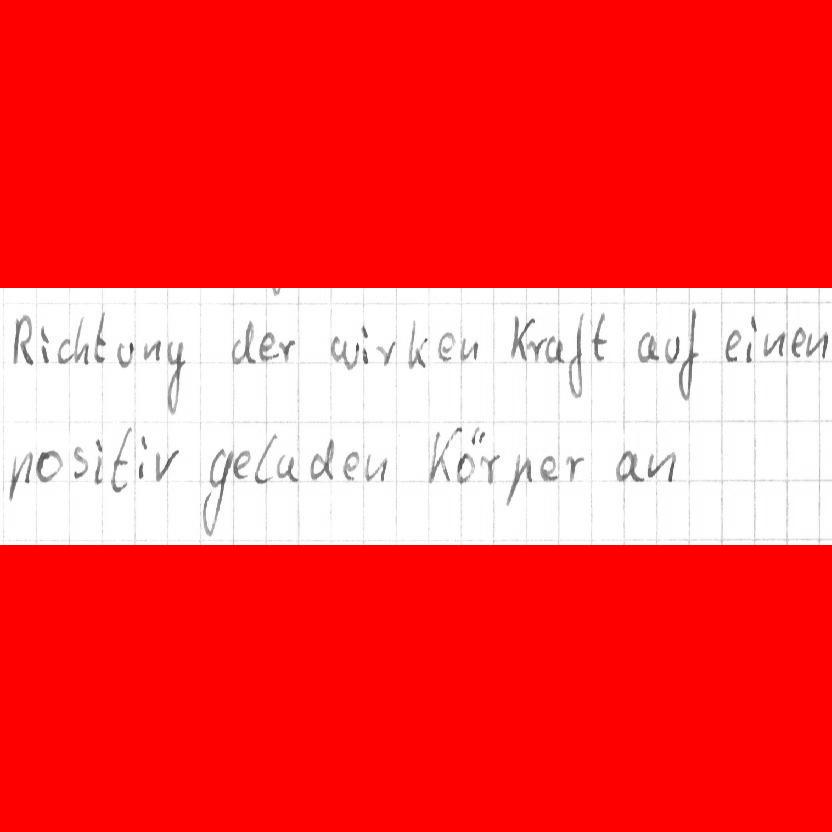 Richtung der wirken Kraft auf einen
positiv geladen Körper an